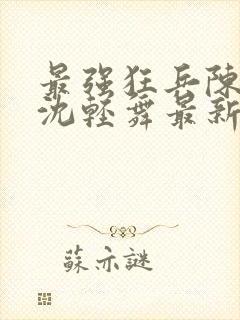 最强狂兵陳
沈軽舞最新
蘇亦謎